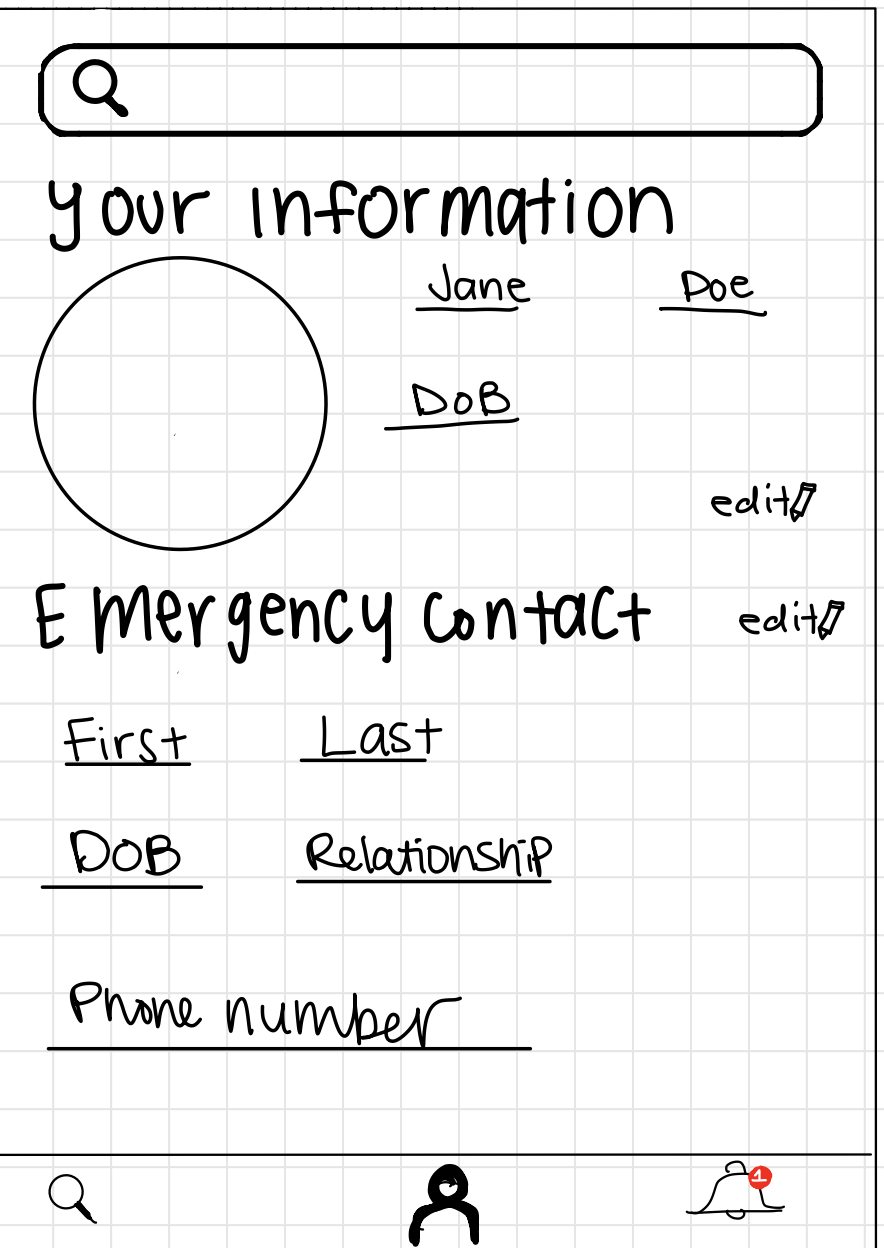 Your Information
Jane Doe
DOB
edit
Emergency contact edit
First Last
DOB Relationship
Phone number
1